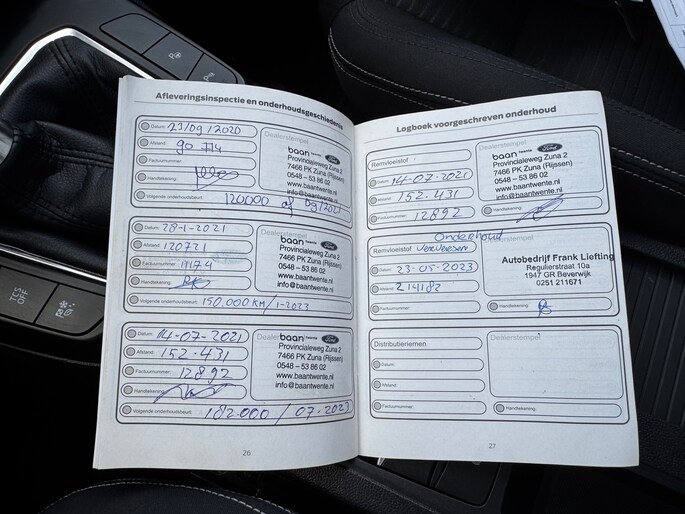 Afleveringsinspectie en onderhoudsgeschiedenis
Datum: 23/09/2020
Afstand: 90 774
Factuurnummer:
Handtekening:
Volgende onderhoudsbeurt: 120000 of 09/2021
Dealerstempel
baan twente Ford
Provincialeweg Zuna 2
7466 PK Zuna (Rijssen)
0548 – 53 86 02
www.baantwente.nl
info@baantwente.nl
Datum: 28-1-2021
Afstand: 120721
Factuurnummer: 11174
Handtekening:
Volgende onderhoudsbeurt: 150.000 KM / 1-2023
baan twente Ford
Provincialeweg Zuna 2
7466 PK Zuna (Rijssen)
0548 – 53 86 02
www.baantwente.nl
info@baantwente.nl
Datum: 14-07-2021
Afstand: 152.431
Factuurnummer: 12892
Handtekening:
Volgende onderhoudsbeurt: 182.000 / 07-2023
baan twente Ford
Provincialeweg Zuna 2
7466 PK Zuna (Rijssen)
0548 – 53 86 02
www.baantwente.nl
info@baantwente.nl
26
Logboek voorgeschreven onderhoud
Remvloeistof
Datum: 14-07-2021
Afstand: 152-431
Factuurnummer: 12892
Dealerstempel
baan twente Ford
Provincialeweg Zuna 2
7466 PK Zuna (Rijssen)
0548 – 53 86 02
www.baantwente.nl
info@baantwente.nl
Handtekening:
Onderhoud
Remvloeistof Ververst
Datum: 23-05-2023
Afstand: 214182
Factuurnummer:
Autobedrijf Frank Liefting
Regulierstraat 10a
1947 GR Beverwijk
0251 211671
Handtekening:
Distributieriemen
Datum:
Afstand:
Factuurnummer:
Dealerstempel
Handtekening:
27
TCS
OFF